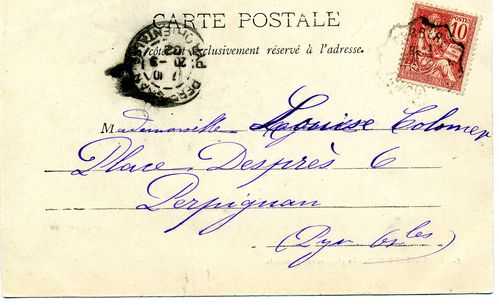 CARTE POSTALE
côté est exclusivement réservé à l'adresse.
POSTES
10
Mademoiselle Louise Colomer
Place Desprès 6
Perpignan
(Pyr. Or.les